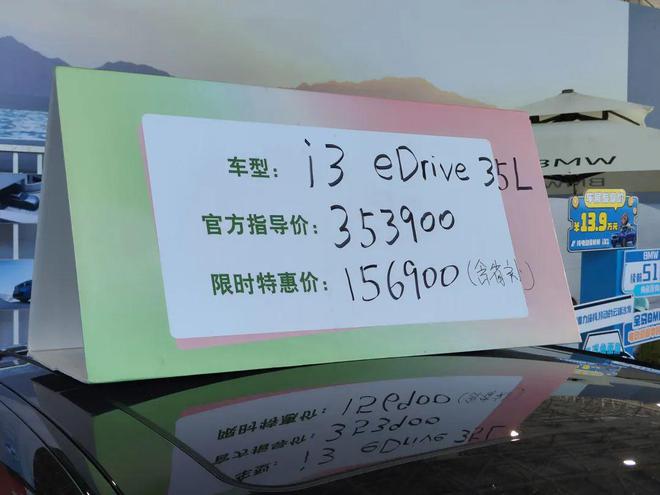 车型: i3 eDrive 35L
官方指导价: 353900
限时特惠价: 156900 (含省补)
BMW
BMW
¥13.9万元
BMW
51